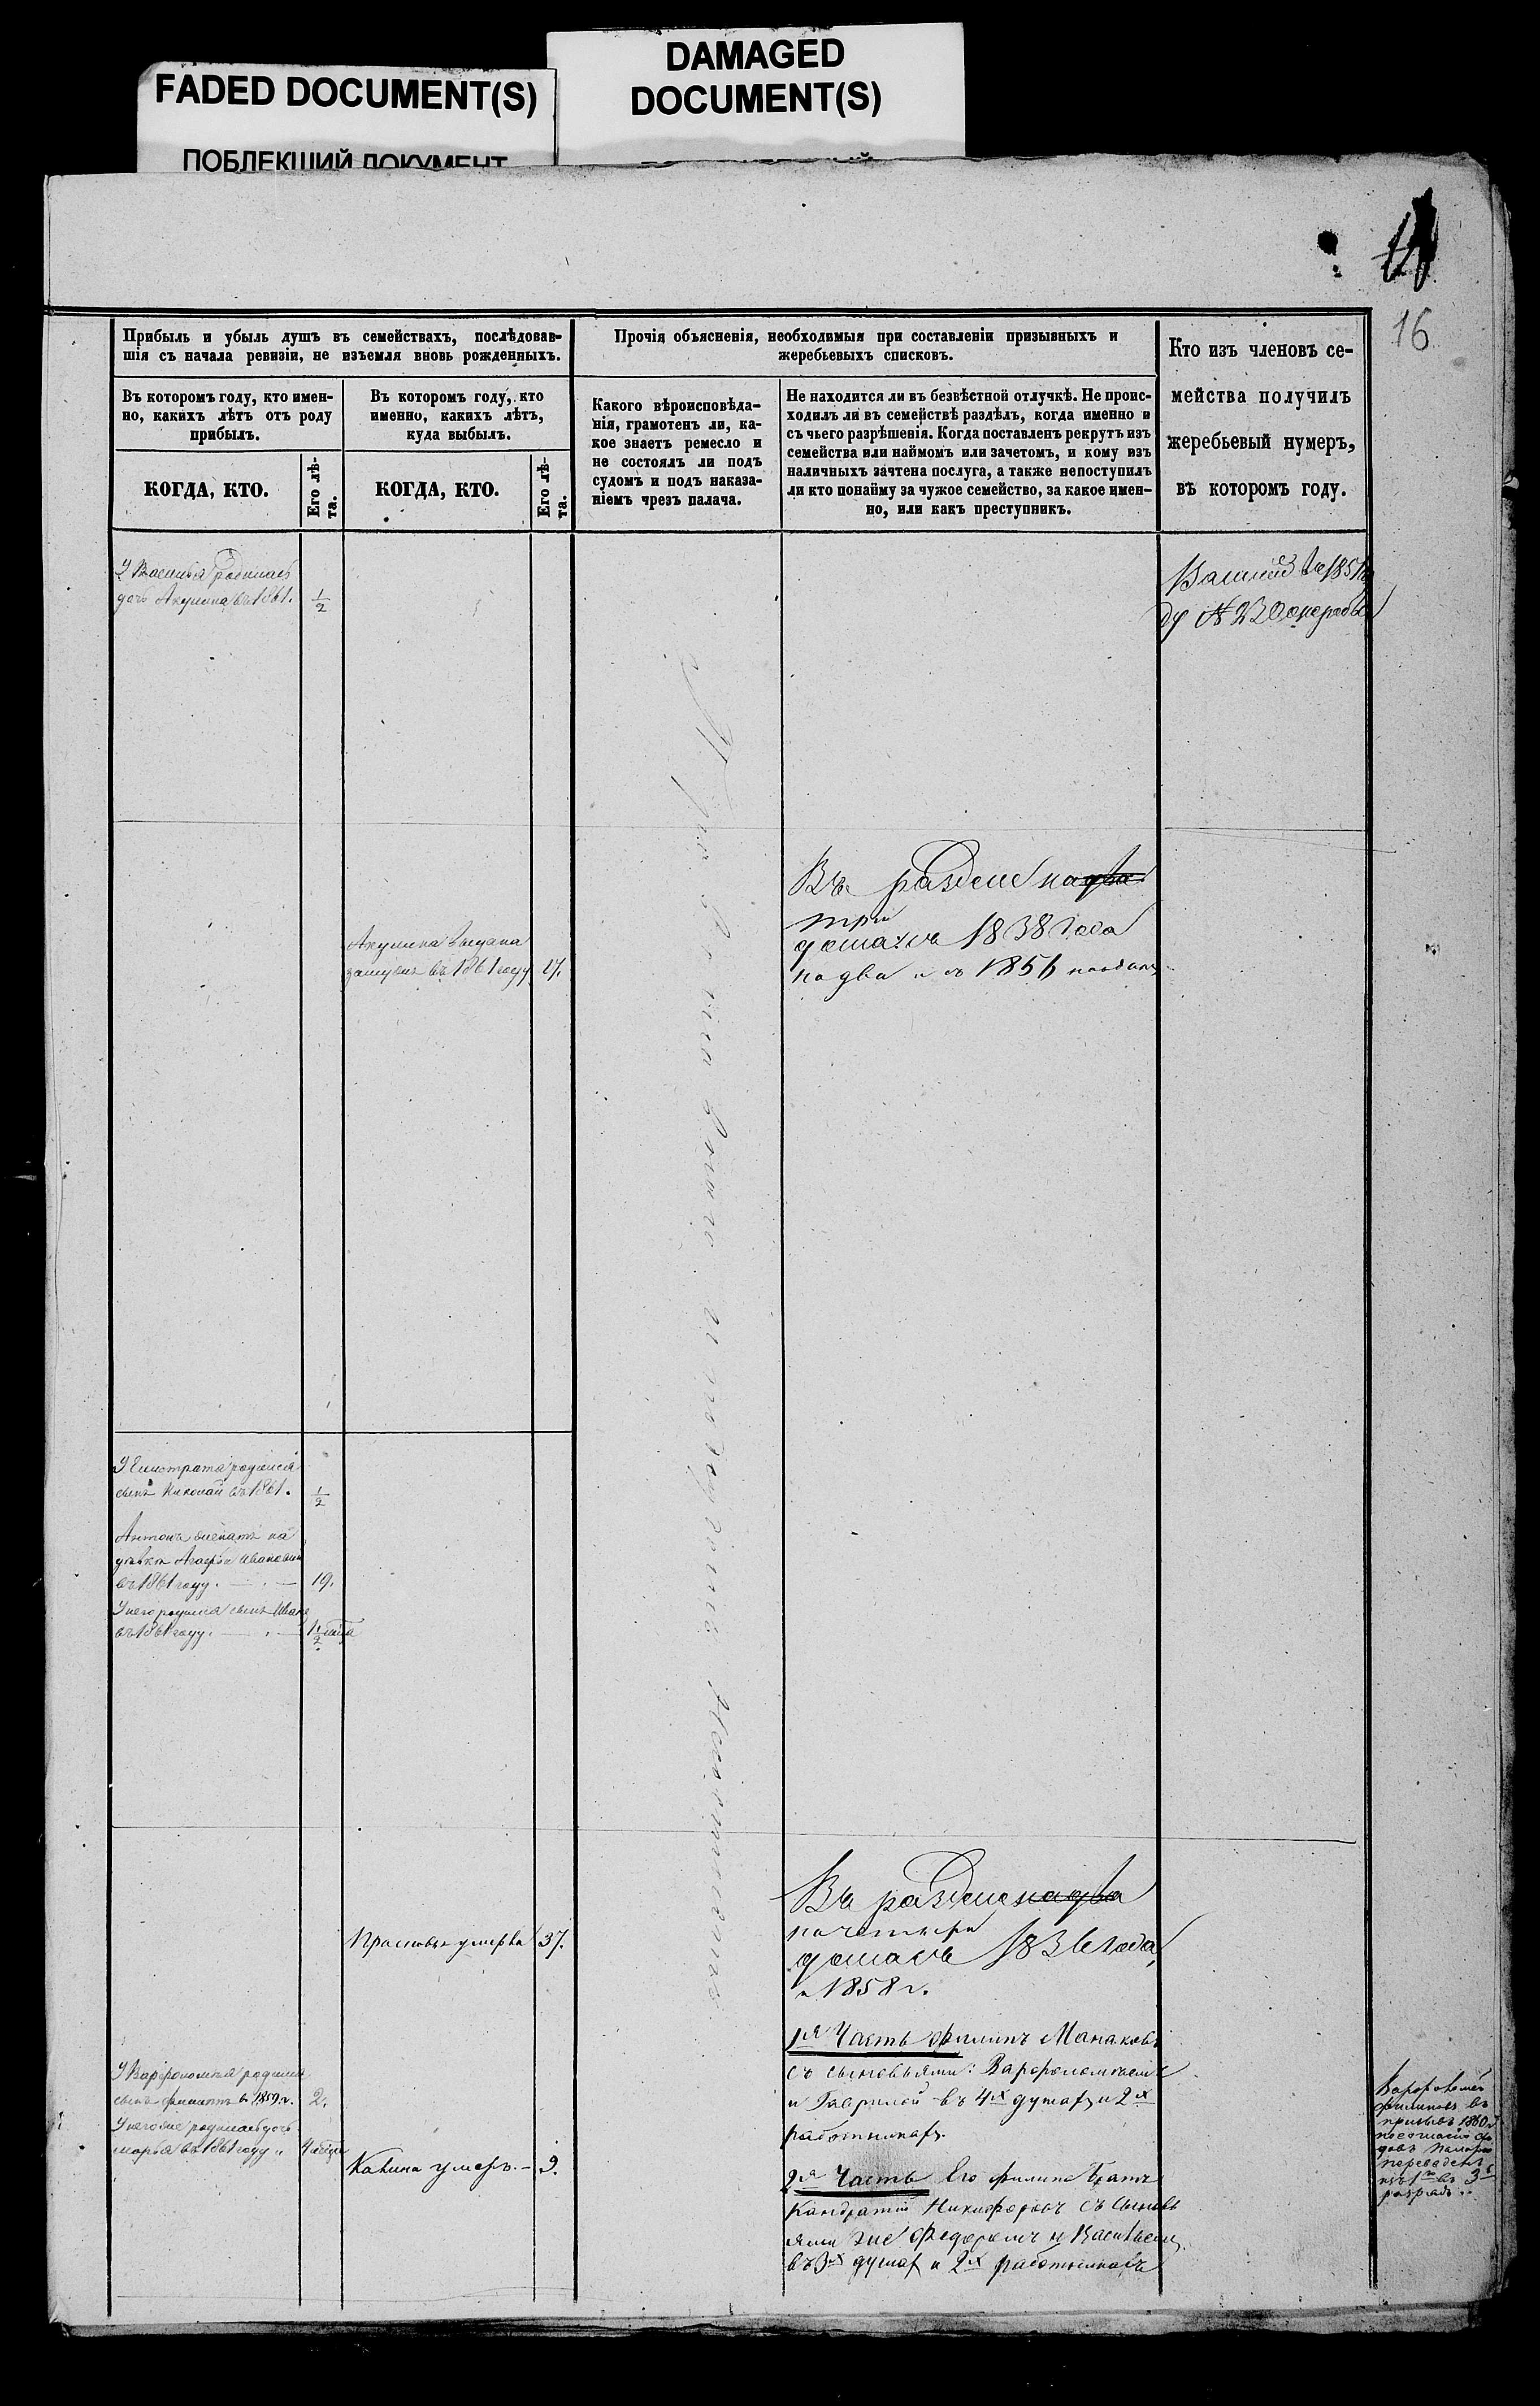 FADED DOCUMENT(S)
ПОБЛЕКШИЙ ДОКУМЕНТ
DAMAGED
DOCUMENT(S)
16
Прибыль и убыль душъ въ семействахъ, послѣдовав-
шія съ начала ревизіи, не изъемля вновь рожденныхъ.
Въ которомъ году, кто имен-
но, какихъ лѣтъ отъ роду
прибылъ.
КОГДА, КТО.
Его лѣ-
та.
Въ которомъ году, кто
именно, какихъ лѣтъ,
куда выбылъ.
КОГДА, КТО.
Его лѣ-
та.
Прочія объясненія, необходимыя при составленіи призывныхъ и
жеребьевыхъ списковъ.
Какого вѣроисповѣда-
нія, грамотенъ ли, ка-
кое знаетъ ремесло и
не состоялъ ли подъ
судомъ и подъ наказа-
ніемъ чрезъ палача.
Не находится ли въ безвѣстной отлучкѣ. Не проис-
ходилъ ли въ семействѣ раздѣлъ, когда именно и
съ чьего разрѣшенія. Когда поставленъ рекрутъ изъ
семейства или наймомъ или зачетомъ, и кому изъ
наличныхъ зачтена послуга, а также непоступилъ
ли кто понайму за чужое семейство, за какое имен-
но, или какъ преступникъ.
Кто изъ членовъ се-
мейства получилъ
жеребьевый нумеръ,
въ которомъ году.
У Василья родилась
дочь Акулина въ 1861. 1/2
Василий въ 185
ду № 23
Въ разделе на два
три
домахъ 1838 года
на два и въ 1856
Акулина выдана
замужъ въ 1861 году 17.
У Елистрата родился
сынъ Николай въ 1861. 1/2
Антонъ женатъ на
девке Агафье Ивановой
въ 1861 году. 19.
У него родился сынъ Иванъ
въ 1861 году. 1/2
Въ разделе на два
на четыре
домахъ 1836 года,
и 1858 г.
Прасковья умерла 37.
1я Часть Филипъ Манаковъ
съ сыновьями: Варфоломеемъ
и Гаврилой въ 4х душах и 2х
работниках.
2я Часть Его Филипа братъ
Кандратий Никифоровъ съ сыновь
ями Федоромъ и Васильемъ
въ 3х душах и 2х работникахъ
У Варфоломея родился
сынъ Филиппъ в 1859 г. 2.
У него же родилась дочь
Марья въ 1861 году
Калина умеръ. - 9.
Варфоломей
Филиповъ въ
призывъ 1860 г.
переведенъ
изъ 1го въ 3й
разрядъ.